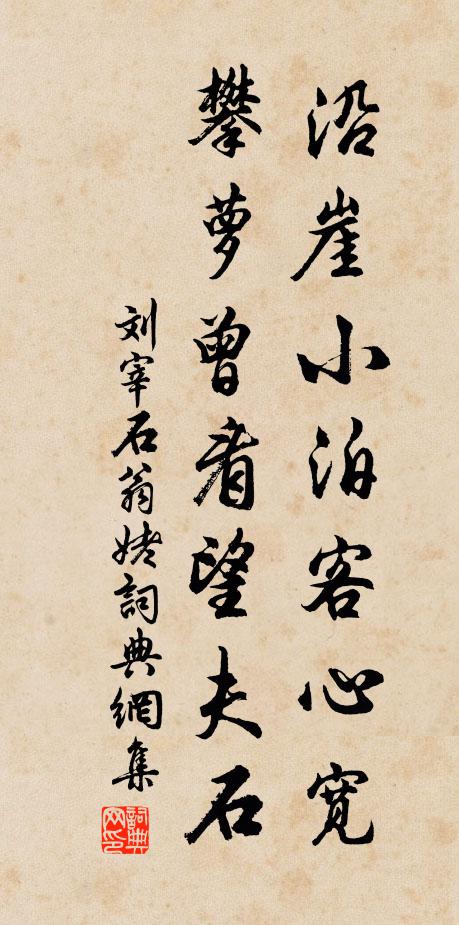 沿崖小泊客心寬
攀萝曾看望夫石
刘宰石翁姥詞典網集
詞典网印